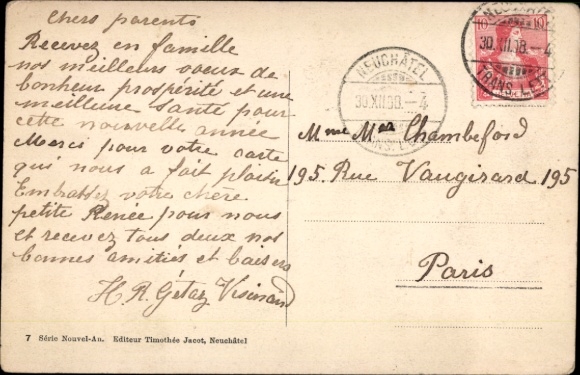 Chers parents
Recevez en famille
nos meilleurs voeux de
bonheur prospérité et une
meilleure santé pour
cette nouvelle année
Merci pour votre carte
qui nous a fait plaisir
Embrassez votre chère
petite Renée pour nous
et recevez tous deux nos
bonnes amitiés et baisers
H. R. Gétaz
7 Série Nouvel-An. Editeur Timothée Jacot, Neuchâtel
10 10
NEUCHÂTEL
30.XII.08.-4
TRANS. LETT.
NEUCHÂTEL
30.XII.08.-4
TRANS. LETT.
Mme Mr Chambeford
195. Rue Vaugirard 195
Paris